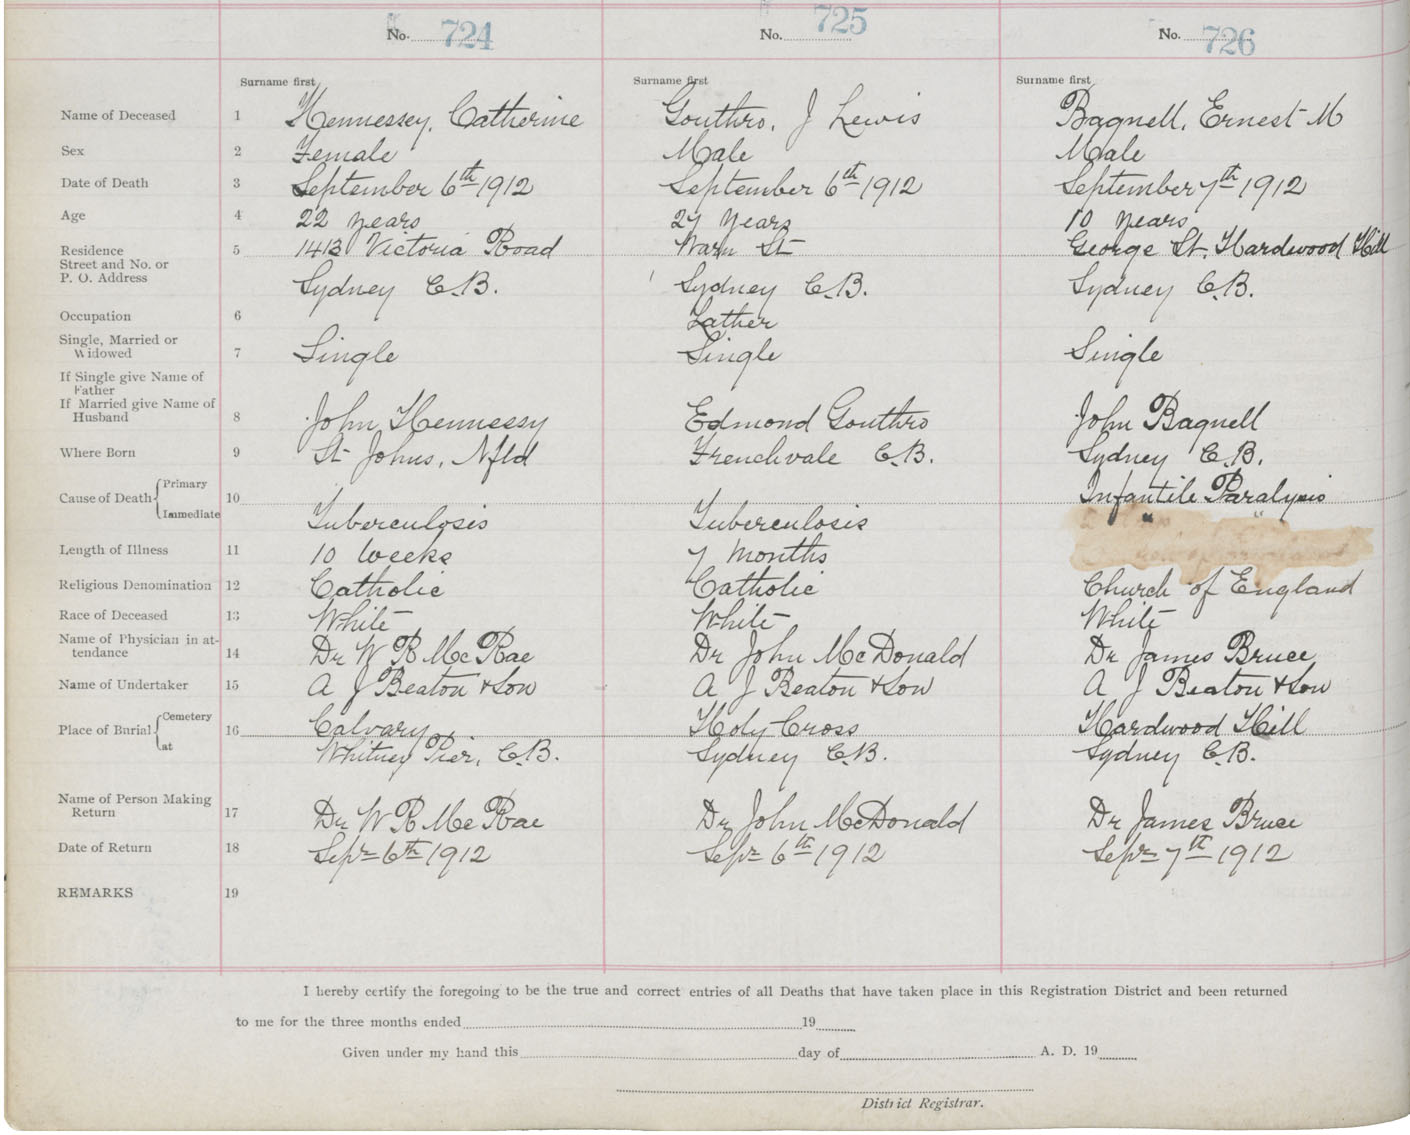 No. 724 No. 725 No. 726
Surname first Surname first Surname first
Name of Deceased 1 Hennessey, Catherine Gouthro, J Lewis Bagnell, Ernest M
Sex 2 Female Male Male
Date of Death 3 September 6th 1912 September 6th 1912 September 7th 1912
Age 4 22 years 27 years 10 years
Residence 5 1413 Victoria Road St George St. Hardwood Hill
Street and No. or
P. O. Address Sydney C.B. Sydney C.B. Sydney C.B.
Occupation 6 Lather
Single, Married or
Widowed 7 Single Single Single
If Single give Name of
Father
If Married give Name of
Husband 8 John Hennessy Edmond Gouthro John Bagnell
Where Born 9 St Johns, Nfld Frenchvale C.B. Sydney C.B.
Cause of Death { Primary 10 Infantile Paralysis
Immediate Tuberculosis Tuberculosis " "
Length of Illness 11 10 weeks 7 months
Religious Denomination 12 Catholic Catholic Church of England
Race of Deceased 13 White White White
Name of Physician in at-
tendance 14 Dr W R McRae Dr John McDonald Dr James Bruce
Name of Undertaker 15 A J Beaton & Son A J Beaton & Son A J Beaton & Son
Place of Burial { Cemetery 16 Calvary Holy Cross Hardwood Hill
at Whitney Pier, C.B. Sydney C.B. Sydney C.B.
Name of Person Making
Return 17 Dr W R McRae Dr John McDonald Dr James Bruce
Date of Return 18 Sepr 6th 1912 Sepr 6th 1912 Sepr 7th 1912
REMARKS 19
I hereby certify the foregoing to be the true and correct entries of all Deaths that have taken place in this Registration District and been returned
to me for the three months ended 19
Given under my hand this day of A. D. 19
District Registrar.